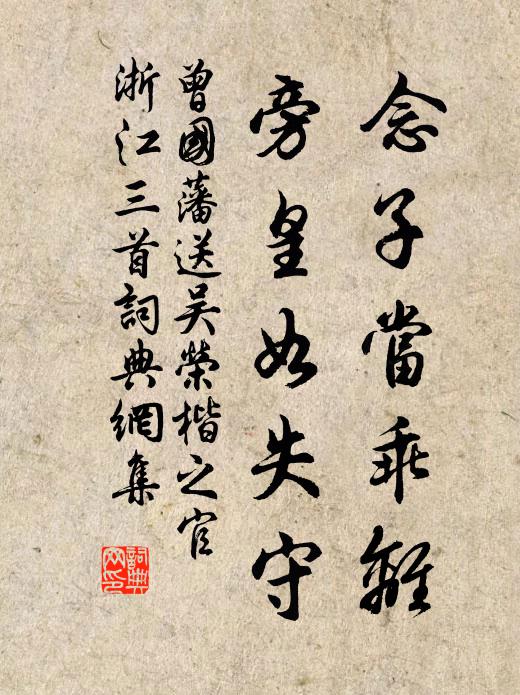 念子當乖離
旁皇如失守
曾國藩送吴榮楷之官
浙江三首詞典網集
詞典
网印